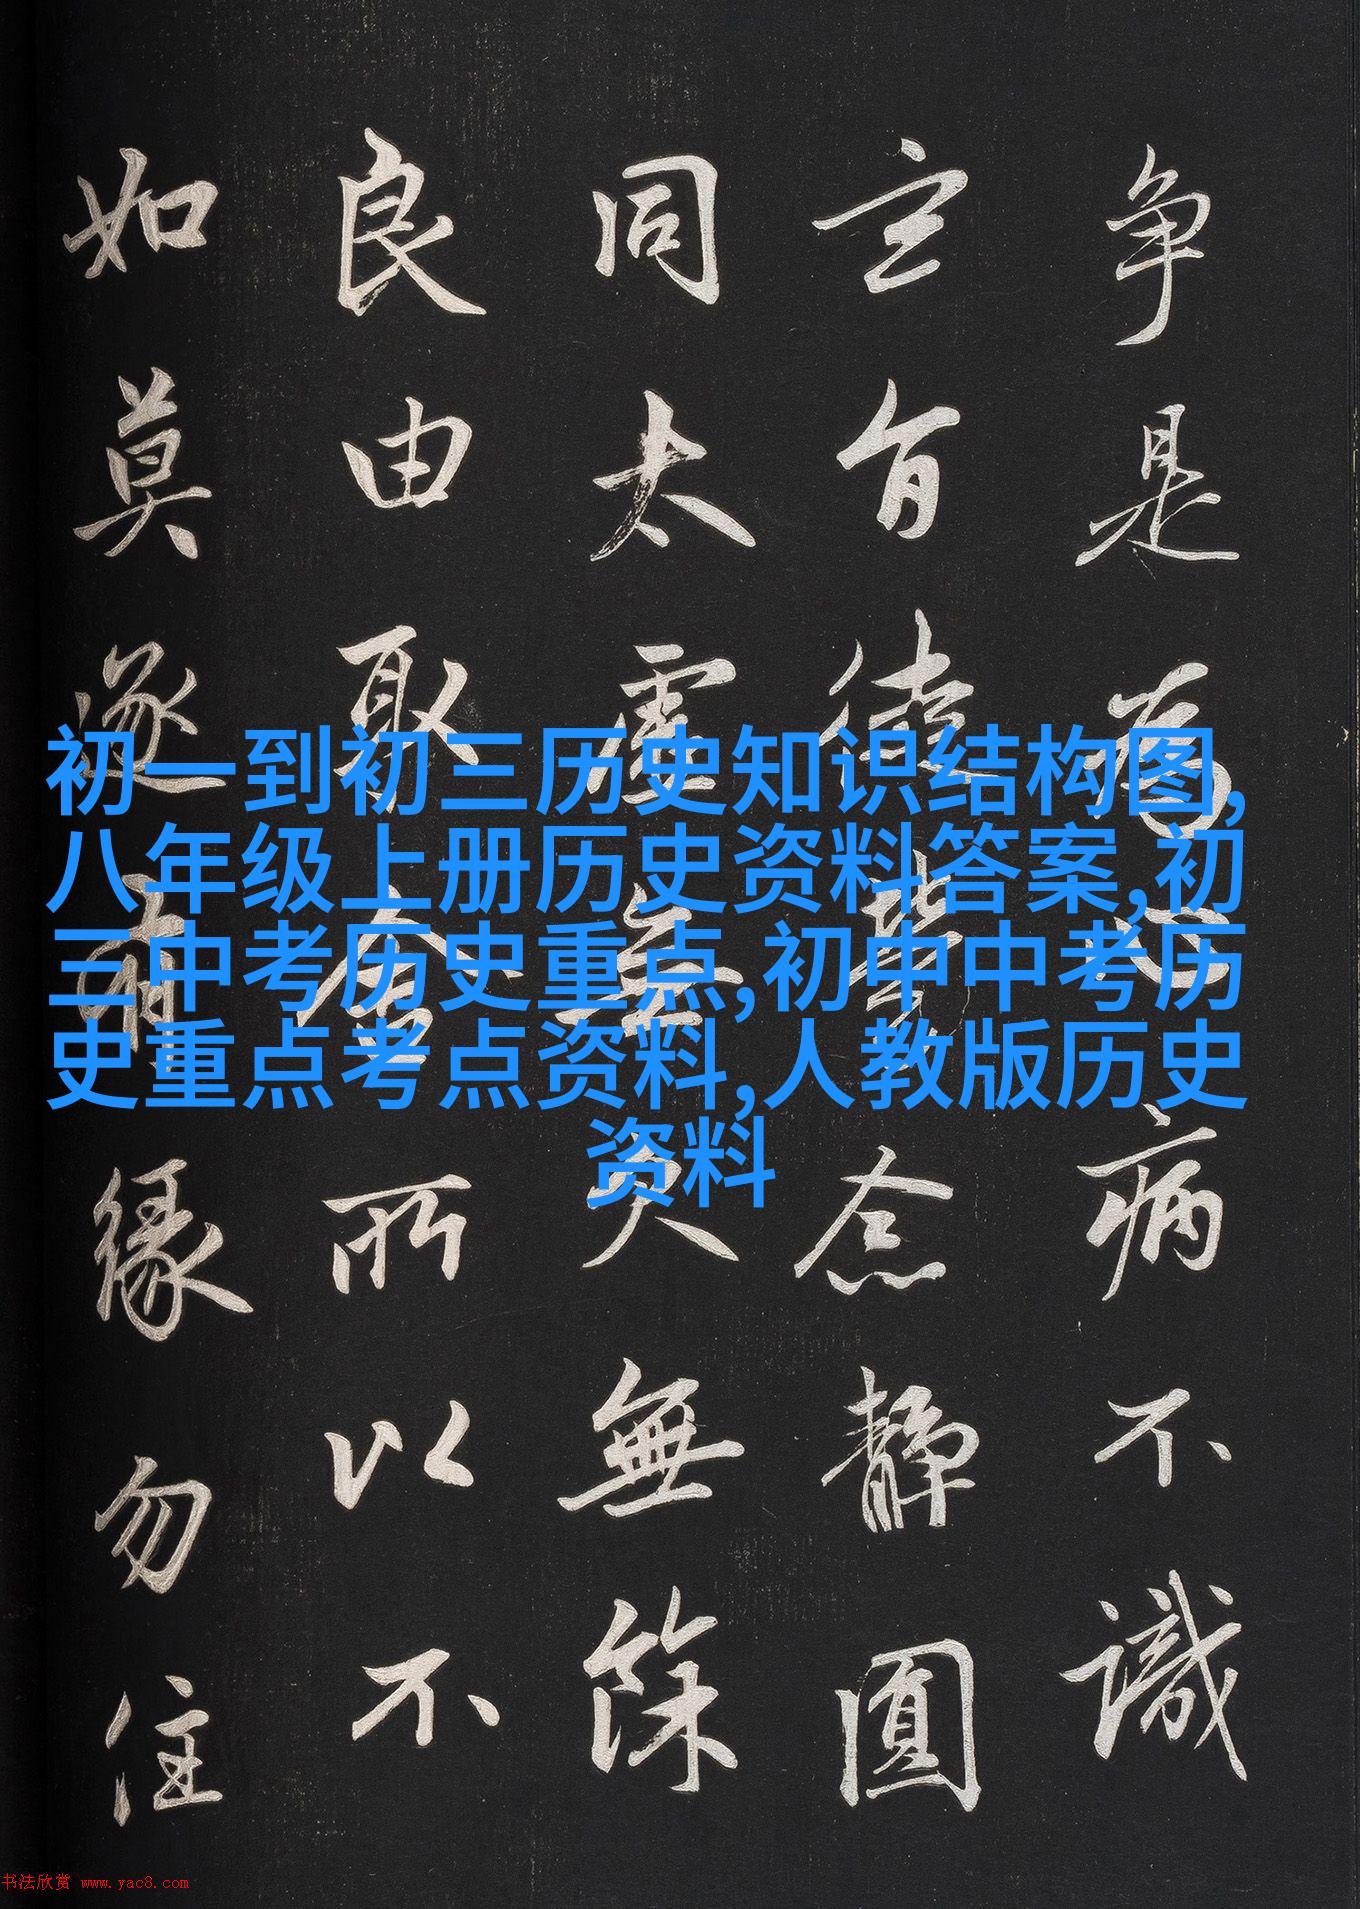 争是為心病不識
玄旨徒勞念靜圓
同太虛無欠無餘
良由取舍所以不
如莫逐有緣勿住
初一到初三历史知识结构图,
八年级上册历史资料答案,初
三中考历史重点,初中中考历
史重点考点资料,人教版历史
资料
书法欣赏 www.yac8.com